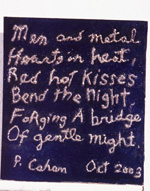 Men and metal
Hearts in heat,
Red hot Kisses
Bend the Night
Forging A bridge
Of gentle might.
P. Cahan Oct 2003